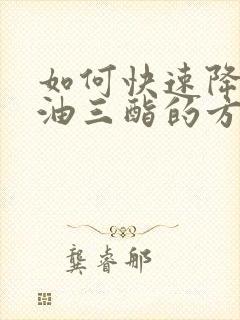 如何快速降
油三酯的方
龚睿郍